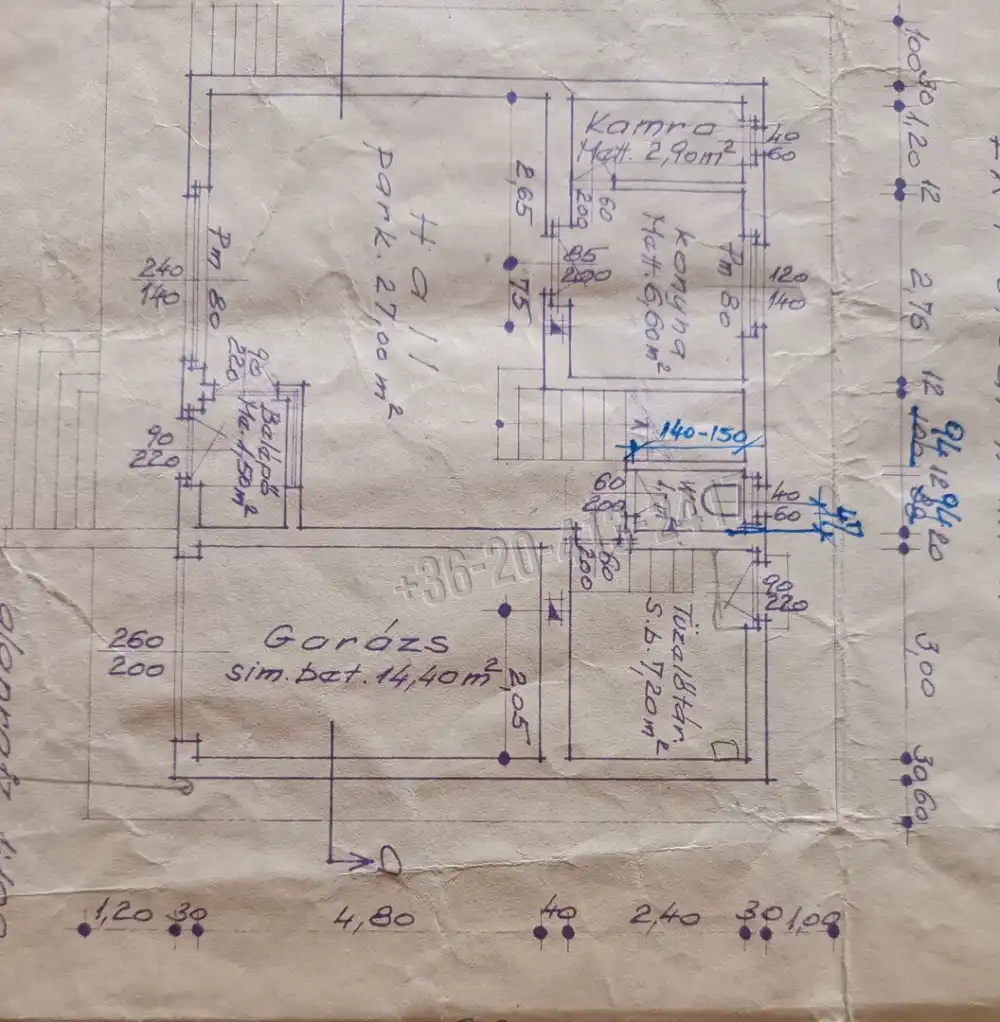 Kamra
Matt. 2,90m²
40
60
60
200
Konyha
Matt. 6,60m²
Pm 80
120
140
85
200
2,65
75
Hall
park. 27,00 m²
Pm 80
240
140
90
220
Belépő
Ma 1,50m²
90
220
140-150
60
200
WC
1m²
40
60
47
60
200
90
220
Garázs
sim. bet. 14,40m²
260
200
2,05
Tüzelőtár.
S.b. 7,20m²
+36-20-
a
1,20 30 4,80 40 2,40 30 1,00
100 30 1,20 12 2,76 12 94 12 94 20 3,00 30 60